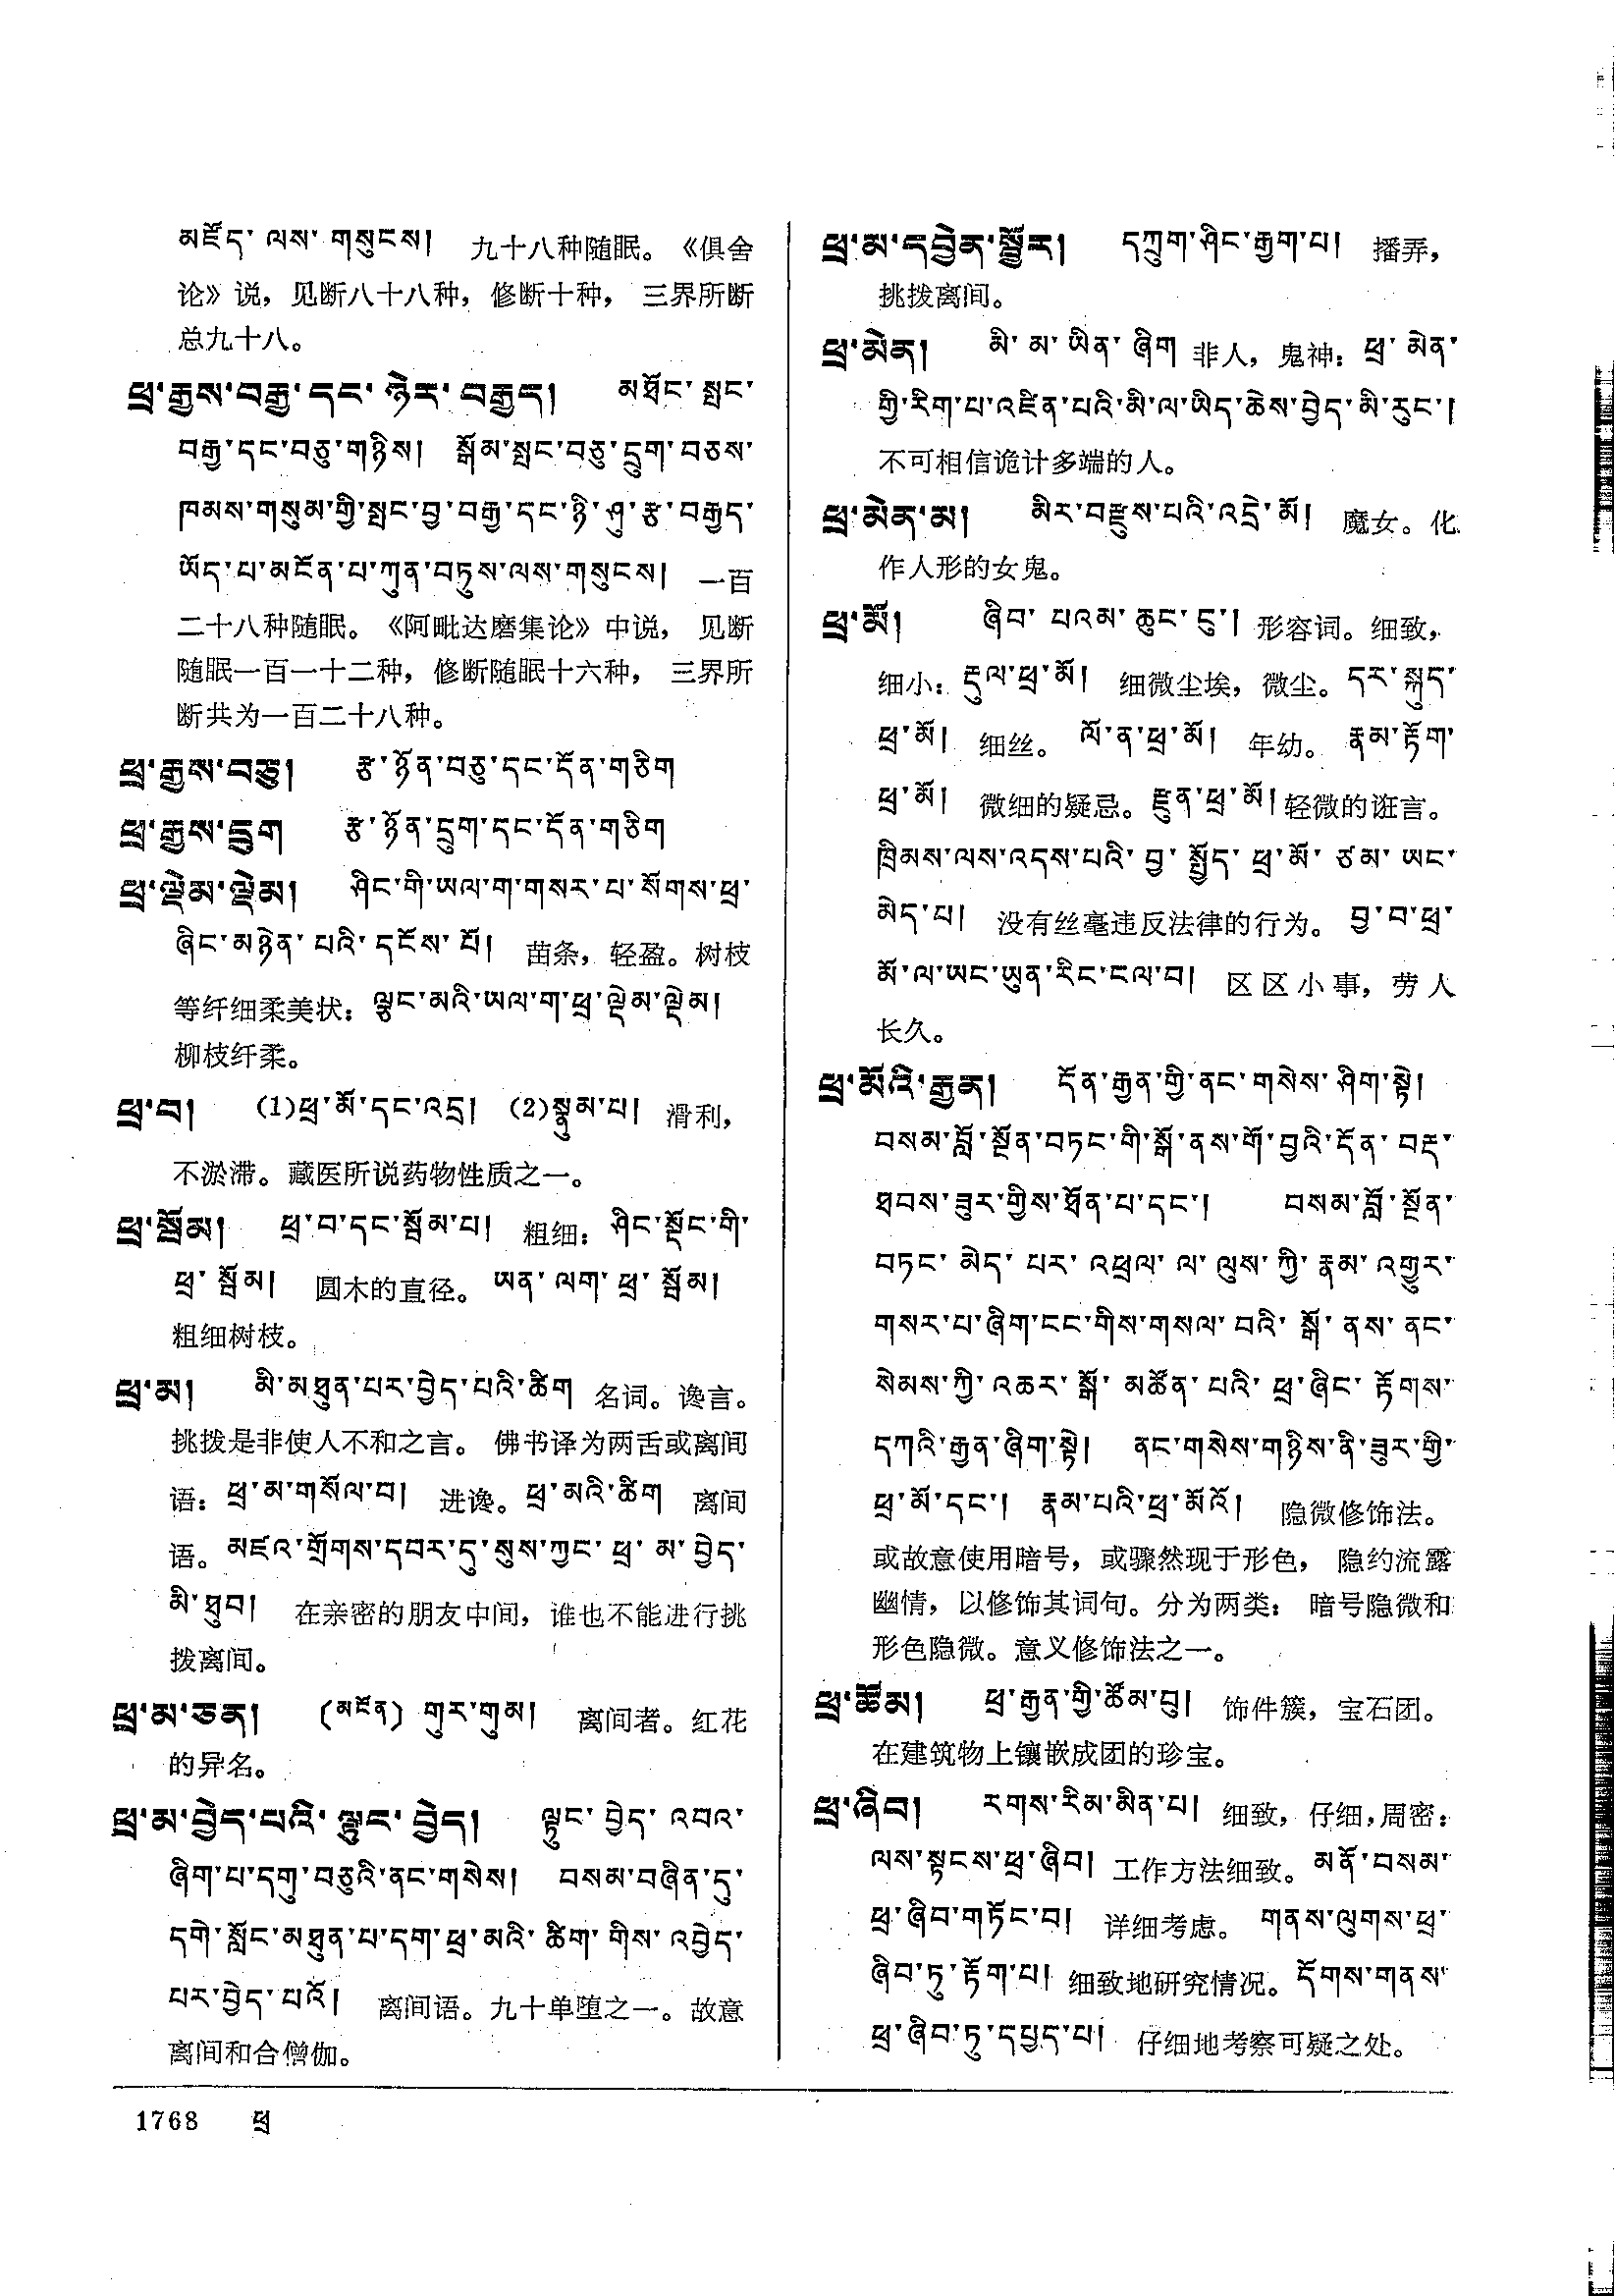 མཛོད་ ལས་ གསུངས། 九十八种随眠。《俱舍
论》说，见断八十八种，修断十种， 三界所断
总九十八。
ཕྲ་རྒྱས་བརྒྱ་དང་ཉེར་བརྒྱད། མཐོང་སྤང་
བརྒྱ་དང་བཅུ་གཉིས། སྒོམ་སྤང་བཅུ་དྲུག་བཅས་
ཁམས་གསུམ་གྱི་སྤང་བྱ་བརྒྱ་དང་ཉི་ཤུ་རྩ་བརྒྱད་
ཡོད་པ་མངོན་པ་ཀུན་བཏུས་ལས་གསུངས། 一百
二十八种随眠。《阿毗达磨集论》中说， 见断
随眠一百一十二种，修断随眠十六种， 三界所
断共为一百二十八种。
ཕྲ་རྒྱས་བཅུ། རྩ་ཉོན་བཅུ་དང་དོན་གཅིག
ཕྲ་རྒྱས་དྲུག རྩ་ཉོན་དྲུག་དང་དོན་གཅིག
ཕྲ་ལྡེམ་ལྡེམ། ཤིང་གི་ཡལ་ག་གསར་པ་སོགས་ཕྲ་
ཞིང་མཉེན་པའི་དངོས་པོ། 苗条，轻盈。树枝
等纤细柔美状：ལྕང་མའི་ཡལ་ག་ཕྲ་ལྡེམ་ལྡེམ།
柳枝纤柔。
ཕྲ་བ། (1)ཕྲ་མོ་དང་འདྲ། (2)སྣུམ་པ། 滑利，
不淤滞。藏医所说药物性质之一。
ཕྲ་སྦོམ། ཕྲ་བ་དང་སྦོམ་པ། 粗细：ཤིང་སྡོང་གི་
ཕྲ་སྦོམ། 圆木的直径。ཡན་ལག་ཕྲ་སྦོམ།
粗细树枝。
ཕྲ་མ། མི་མཐུན་པར་བྱེད་པའི་ཚིག 名词。谗言。
挑拨是非使人不和之言。 佛书译为两舌或离间
语：ཕྲ་མ་གསོལ་བ། 进谗。ཕྲ་མའི་ཚིག 离间
语。མཛའ་གྲོགས་དབར་དུ་སུས་ཀྱང་ཕྲ་མ་བྱེད་
མི་ཐུབ། 在亲密的朋友中间，谁也不能进行挑
拨离间。
ཕྲ་མ་ཅན། (མངོན) གུར་གུམ། 离间者。红花
的异名。
ཕྲ་མ་བྱེད་པའི་ལྟུང་བྱེད། ལྟུང་བྱེད་འབའ་
ཞིག་པ་དགུ་བཅུའི་ནང་གསེས། བསམ་བཞིན་དུ་
དགེ་སློང་མཐུན་པ་དག་ཕྲ་མའི་ཚིག་གིས་འབྱེད་
པར་བྱེད་པའོ། 离间语。九十单堕之一。故意
离间和合僧伽。
ཕྲ་མ་དབྱེན་སྦྱོར། དཀྲུག་ཤིང་རྒྱག་པ། 播弄，
挑拨离间。
ཕྲ་མེན། མི་མ་ཡིན་ཞིག 非人，鬼神：ཕྲ་མེན་
གྱི་རིག་པ་འཛིན་པའི་མི་ལ་ཡིད་ཆེས་བྱེད་མི་རུང་།
不可相信诡计多端的人。
ཕྲ་མེན་མ། མིར་བརྫུས་པའི་འདྲེ་མོ། 魔女。化
作人形的女鬼。
ཕྲ་མོ། ཞིབ་པའམ་ཆུང་ངུ་། 形容词。细致，
细小：རྡུལ་ཕྲ་མོ། 细微尘埃，微尘。དར་སྐུད་
ཕྲ་མོ། 细丝。 ལོ་ན་ཕྲ་མོ། 年幼。 རྣམ་རྟོག་
ཕྲ་མོ། 微细的疑忌。རྫུན་ཕྲ་མོ།轻微的诳言。
ཁྲིམས་ལས་འདས་པའི་བྱ་སྤྱོད་ཕྲ་མོ་ཙམ་ཡང་
མེད་པ། 没有丝毫违反法律的行为。 བྱ་བ་ཕྲ་
མོ་ལ་ཡང་ཡུན་རིང་ངལ་བ། 区区小事，劳人
长久。
ཕྲ་མོའི་རྒྱན། དོན་རྒྱན་གྱི་ནང་གསེས་ཤིག་སྟེ།
བསམ་བློ་སྔོན་བཏང་གི་སྒོ་ནས་གོ་བྱའི་དོན་བརྡ་
ཐབས་ཟུར་གྱིས་ཐོན་པ་དང་། བསམ་བློ་སྔོན་
བཏང་མེད་པར་འཕྲལ་ལ་ལུས་ཀྱི་རྣམ་འགྱུར་
གསར་པ་ཞིག་ངང་གིས་གསལ་བའི་སྒོ་ནས་ནང་
སེམས་ཀྱི་འཆར་སྒོ་མཚོན་པའི་ཕྲ་ཞིང་རྟོགས་
དཀའི་རྒྱན་ཞིག་སྟེ། ནང་གསེས་གཉིས་ནི་ཟུར་གྱི་
ཕྲ་མོ་དང་། རྣམ་པའི་ཕྲ་མོའོ། 隐微修饰法。
或故意使用暗号，或骤然现于形色， 隐约流露
幽情，以修饰其词句。分为两类： 暗号隐微和
形色隐微。意义修饰法之一。
ཕྲ་ཚོམ། ཕྲ་རྒྱན་གྱི་ཚོམ་བུ། 饰件簇，宝石团。
在建筑物上镶嵌成团的珍宝。
ཕྲ་ཞིབ། རགས་རིམ་མིན་པ། 细致，仔细，周密：
ལས་སྟངས་ཕྲ་ཞིབ། 工作方法细致。མནོ་བསམ་
ཕྲ་ཞིབ་གཏོང་བ། 详细考虑。 གནས་ལུགས་ཕྲ་
ཞིབ་ཏུ་རྟོག་པ། 细致地研究情况。དོགས་གནས་
ཕྲ་ཞིབ་ཏུ་དཔྱད་པ། 仔细地考察可疑之处。
1768 ཕྲ